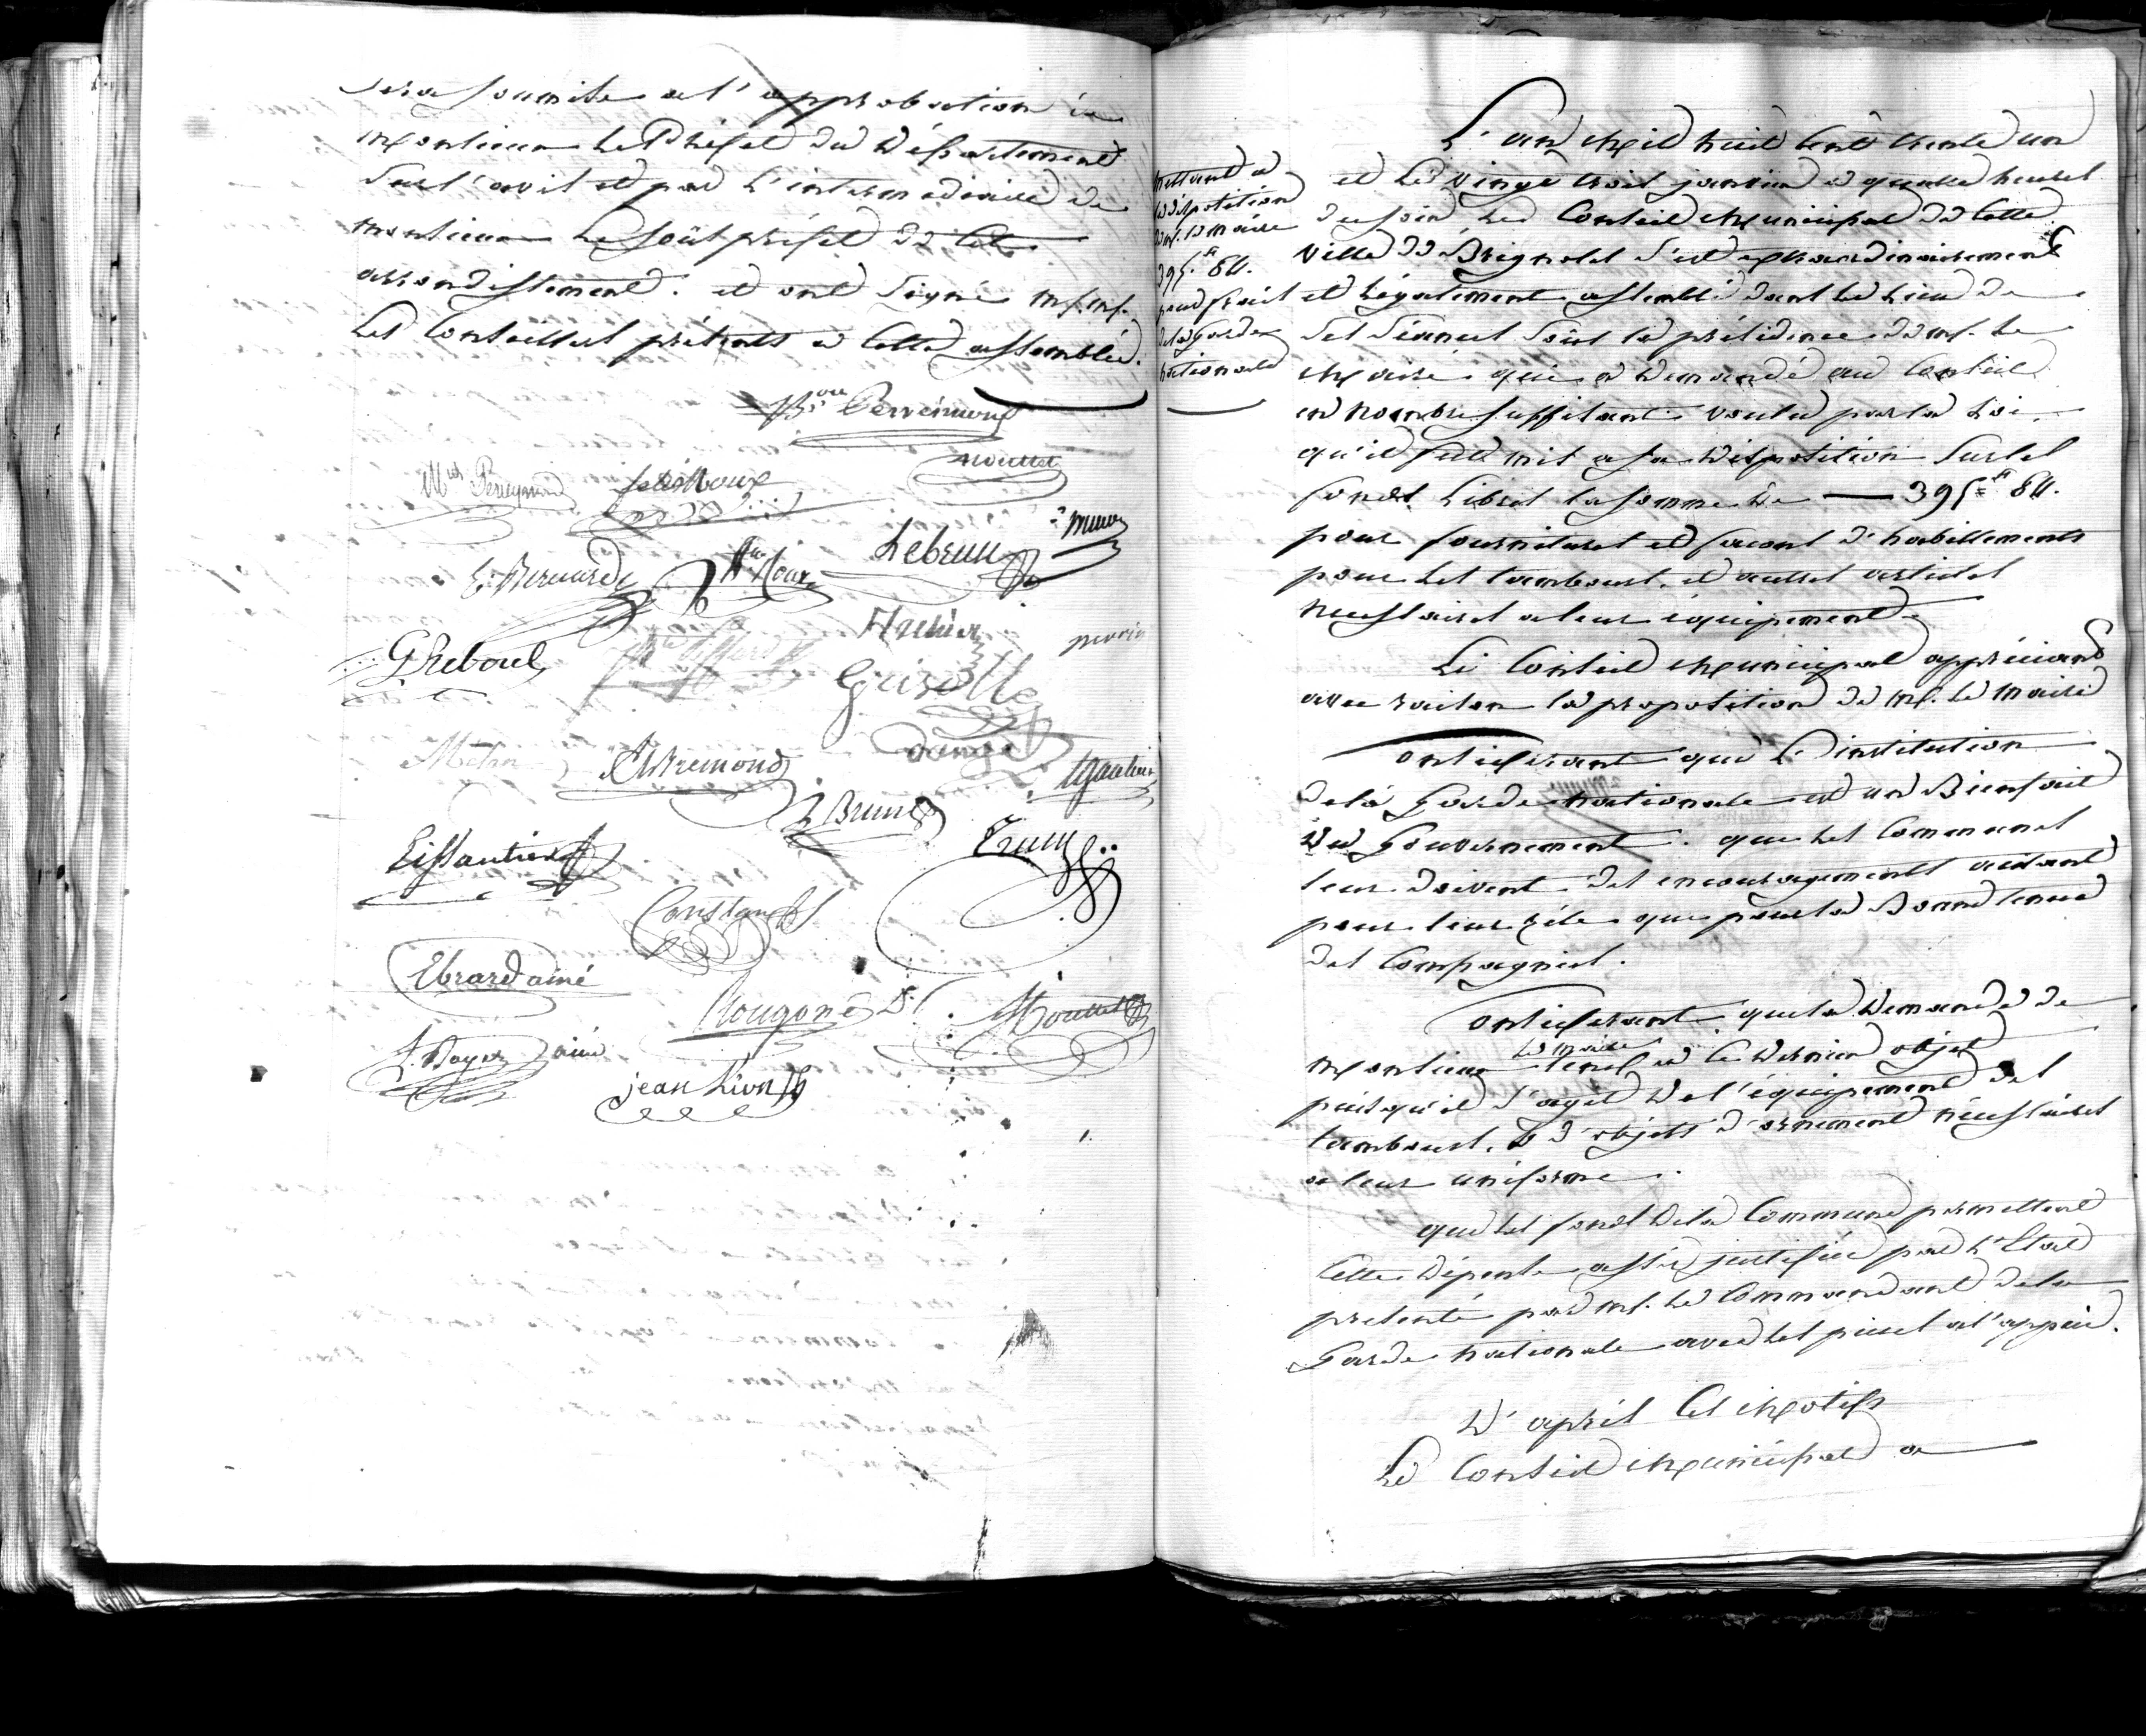 sera soumise a l'approbation de
monsieur Le Préfet du Département
sur l'avis et par L'intermediaire de
monsieur Le sous préfet de Cet
arrondissement. et ont signé mrs.
Les Conseillers présents a cette assemblée.
Perreimond
Moutet
Mus Perreymond
felix Roux
E. Bernard
Roux
Lebrun
G Reboul
Grisolle
A Bremond
L. Gautier
Brun
Eissautier
Constans
Ebrard ainé
Rougon
Moutet
J. Boyer ainé
jean Lion
mettant a
la disposition
de mr. le maire
395.fr 80.
pour frais
de la garde
nationale
L'an mil huit cent trente un
et le vingt trois janvier a quatre heures
du soir le Conseil municipal de cette
ville de Brignoles s'est extraordinairement
et légalement assemblé dans le lieu de
ses séances sous la présidence de mr. le
maire qui a demandé au Conseil
en nombre suffisant voulu par la Loi,
qu'il fut mis a sa disposition sur les
fonds Libres la somme de — 395fr 80.
pour fournitures et facons d'habillements
pour les tambours, et autres articles
necessaires a leur équipement.
Le Conseil municipal appréciant
avec raison la proposition de mr. le maire
Considerant que L'institution
de la Garde nationale est un Bienfait
du Gouvernement. que les Communes
leur doivent des encouragements autant
pour leur zèle que pour la Bonne tenue
des Compagnies.
Considerant que la demande de
le maire
monsieur tend a ce dernier objet
puisqu'il s'agit de l'équipement des
tambours, & d'objets d'ornement nécessaires
a leur uniforme.
que les fonds de la Commune permettent
cette dépense assés justifiée par L'Etat
présenté par mr. le Commandant de la
Garde nationale avec les pieces a l'appui.
D'après Ces motifs
Le Conseil municipal a